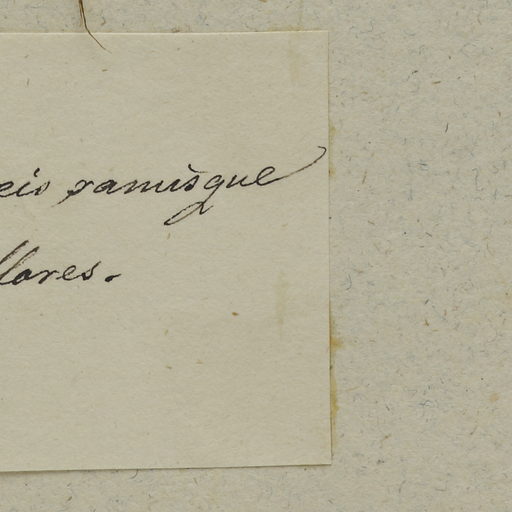 eis ramisque
llares.